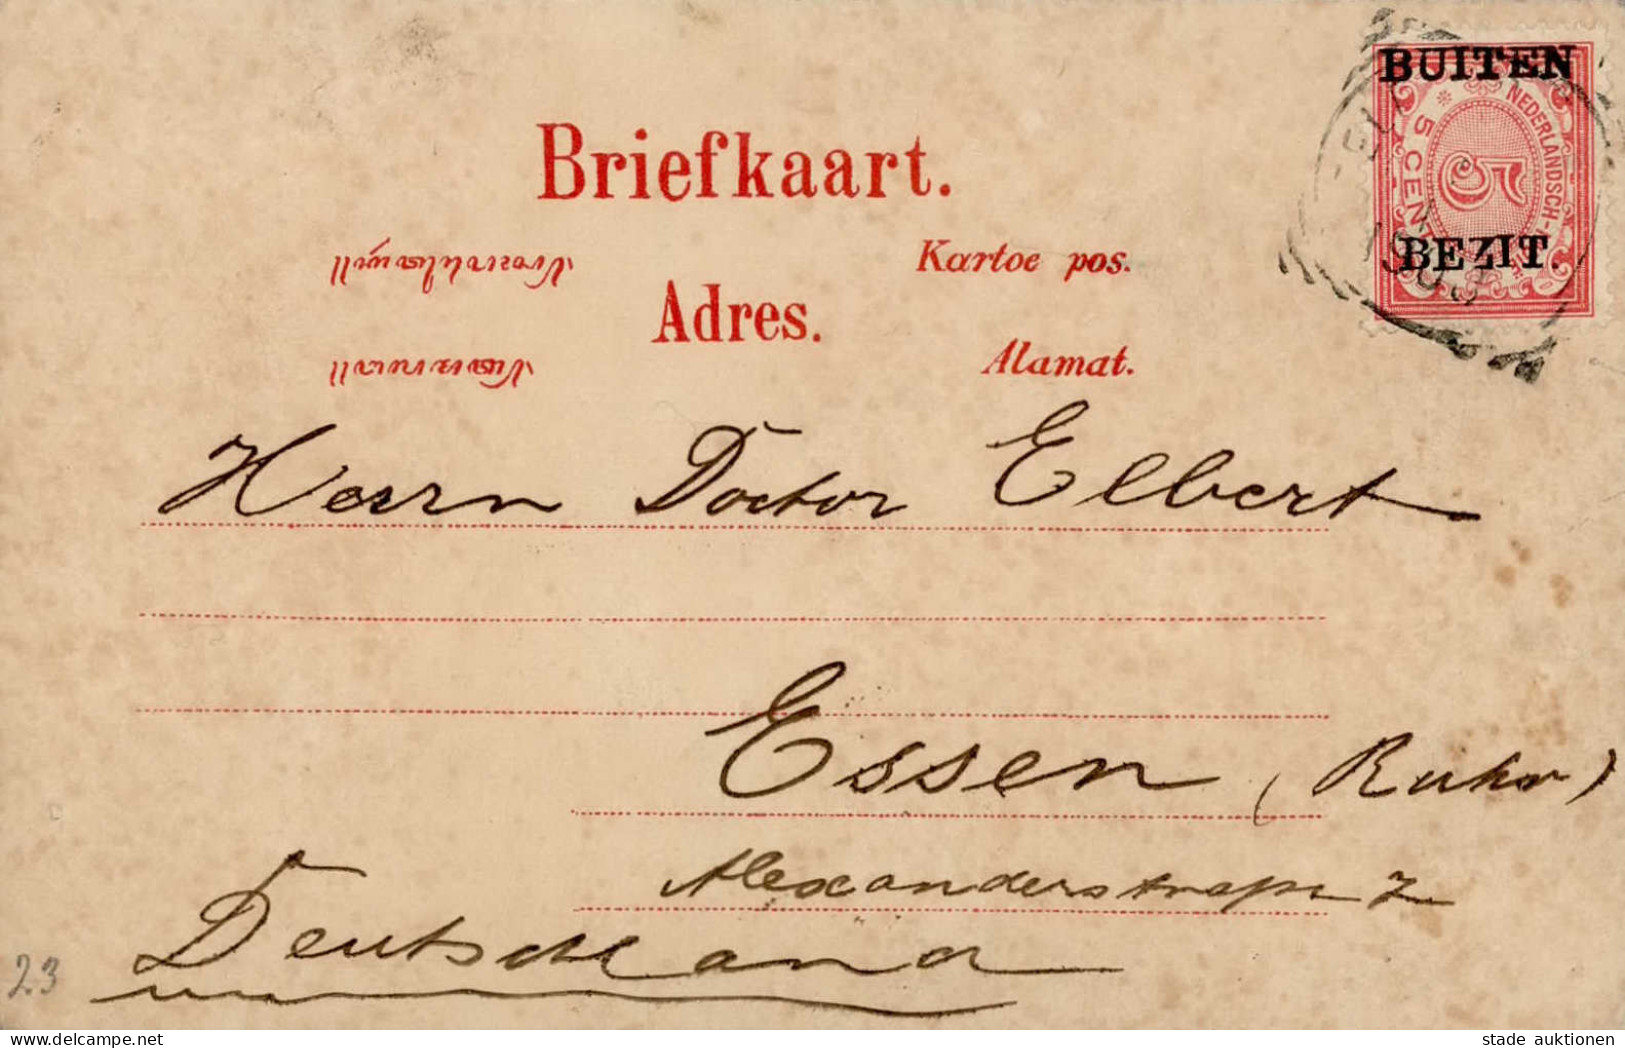 BUITEN
NEDERLANDSCH-
5 CEN
5
BEZIT.
1908
Briefkaart.
Kartoe pos.
Adres.
Alamat.
Herrn Doctor Elbert
Essen (Ruhr)
Alexanderstraße 7
Deutschland
23
www.delcampe.net
stade auktionen